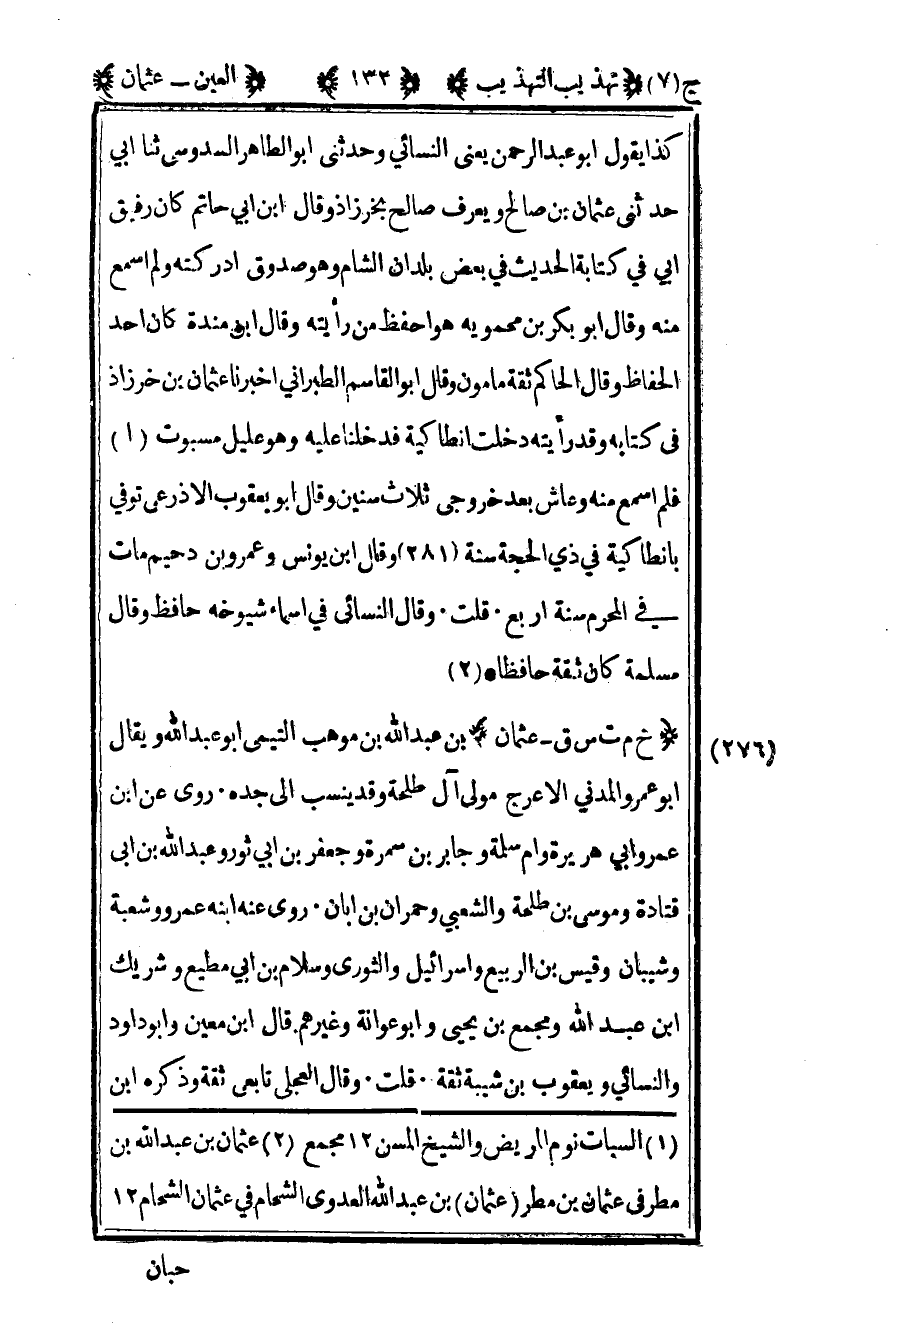 ج (٧) ﴿ تهذيب التهذيب ﴾ ﴿ ١٣٢ ﴾ ﴿ العين ــ عثمان ﴾
كذا يقول ابو عبد الرحمن يعنى النسائي وحدثنى ابو الطاهر السدوسى ثنا ابي
حدثنى عثمان بن صالح ويعرف صالح بخرزاذ وقال ابن ابي حاتم كان رفيق
ابي في كتابة الحديث في بعض بلدان الشام وهو صدوق ادركته ولم اسمع
منه وقال ابو بكر بن محمويه هو احفظ من رأيته وقال ابن مندة كان احد
الحفاظ وقال الحاكم ثقة مامون وقال ابو القاسم الطبراني اخبرنا عثمان بن خرزاذ
فى كتابه وقد رأيته دخلت انطاكية فدخلنا عليه وهو عليل مسبوت (١)
فلم اسمع منه وعاش بعد خروجى ثلاث سنين وقال ابو يعقوب الاذرعى توفي
بانطاكية في ذي الحجة سنة (٢٨١) وقال ابن يونس وعمرو بن دحيم مات
في المحرم سنة اربع · قلت · وقال النسائى في اسماء شيوخه حافظ وقال
مسلمة كان ثقة حافظا • (٢)
﴿ خ م ت س ق ــ عثمان ﴾ بن عبد الله بن موهب التيمى ابو عبد الله ويقال (٢٧٦)
ابو عمرو المدني الاعرج مولى آل طلحة وقد ينسب الى جده · روى عن ابن
عمر وابي هريرة وام سلمة وجابر بن سمرة وجعفر بن ابي ثور وعبد الله بن ابى
قتادة وموسى بن طلحة والشعبي وحمران بن ابان · روى عنه ابنه عمرو وشعبة
وشيبان وقيس بن الربيع واسرائيل والثورى وسلام بن ابي مطيع وشريك
ابن عبد الله ومجمع بن يحيى وابو عوانة وغيرهم. قال ابن معين وابو داود
والنسائي ويعقوب بن شيبة ثقة · قلت · وقال العجلى تابعى ثقة وذكره ابن
(١) السبات نوم المريض والشيخ المسن ١٢ مجمع (٢) عثمان بن عبد الله بن
مطر فى عثمان بن مطر (عثمان) بن عبد الله العدوى الشحام في عثمان الشحام ١٢
حبان